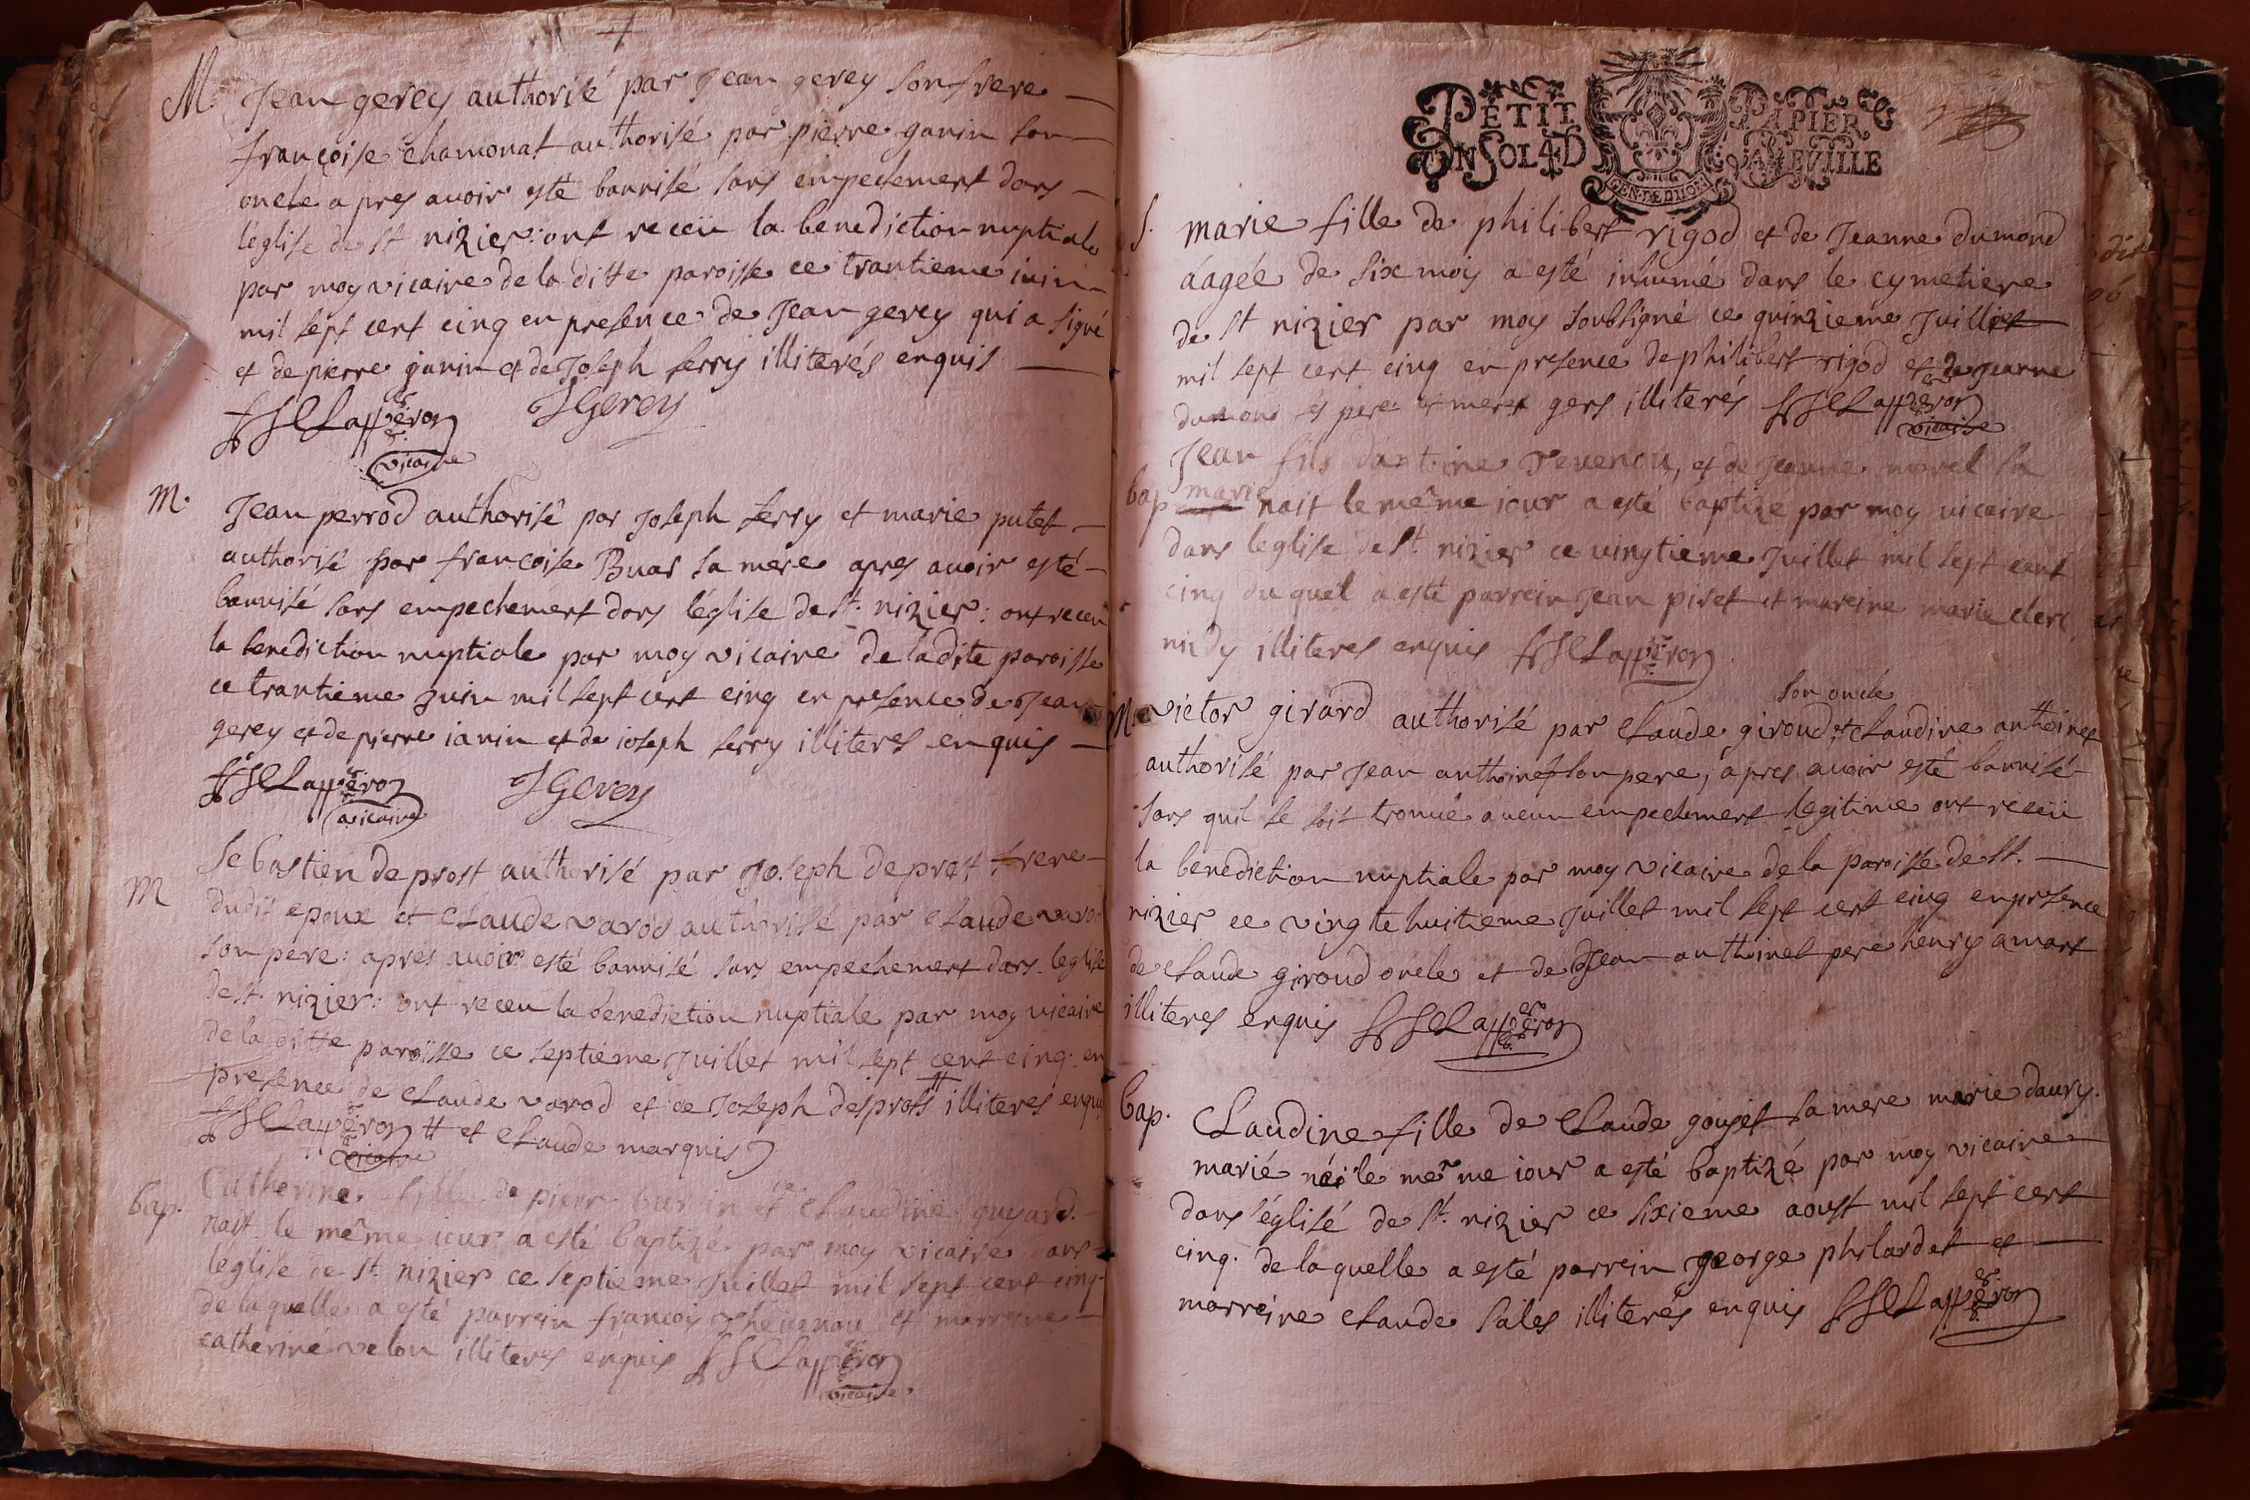 M. Jean gerey authorisé par Jean gerey son frere
françoise chamonat authorisé par pierre ganin son
oncle apres avoir esté bannisé sans empechement dans
leglise de st nizier: ont receu la benediction nuptiale
par moy vicaire de la ditte paroisse ce trantieme iuin
mil sept cent cinq en presence de Jean gerey qui a signé
et de pierre janin et de Joseph ferry illiterés enquis
Lapperon JGerey
vicaire
M. Jean perrod authorisé par Joseph ferry et marie putet
authorisé par francoise Buas sa mere apres avoir esté
bannisé sans empechement dans léglise de st. nizier: ont receu
la benediction nuptiale par moy vicaire de la dite paroisse
ce trantieme Juin mil sept cent cinq en presence de Jean
gerey et de pierre ianin et de ioseph ferry illiteres enquis
Lapperon JGerey
vicaire
M Sebastien deprost authorisé par Joseph deprost frere
dudit epoux et Claude varod authorisé par Claude varod
son pere: apres avoir esté bannisé sans empechement dans leglise
de st. nizier: ont receu la benediction nuptiale par moy vicaire
de la ditte paroisse ce septieme Juillet mil sept cent cinq. en
presence de Claude varod et de Joseph desprost illiteres enquis
Lapperon # et Claude marquis
vicaire
bap. Catherine fille de pierre et Claudine guyard.
nait le même iour a esté baptizé par moy vicaire dans
leglise de st. nizier ce septieme Juillet mil sept cent cinq.
de laquelle a esté parrein francois thevenou et marreine
catherine velon illiteres enquis Lapperon
vicaire
PETIT PAPIER
UN SOL 4D LA FEVILLE
GEN. DE DIJON
S. marie fille de philibert rigod et de Jeanne dumond
áagée de six mois a esté inhumé dans le cymetiere
de st nizier par moy soubsigné ce quinzieme Juillet
mil sept cent cinq en presence de philibert rigod et de Jeanne
dumond ses pere et mere gens illiterés Lapperon
vicaire
Jean fils dantoine Tevenou, et de Jeanne morel sa
bap marié nait le même iour a esté baptizé par moy vicaire
dans leglise de st. nizier ce vingtieme Juillet mil sept cent
cinq du quel a esté parrein Jean piret et mareine marie clerc
illiteres enquis Lapperon
son oncle
M. victor girard authorisé par Claude giroud et Claudine anthoinet
authorisé par Jean anthoinet son pere, apres avoir esté bannisé
sans quil se soit trouvé aucun empechement legitime ont receü
la benediction nuptiale par moy vicaire de la paroisse de st.
nizier ce vingtehuitieme Juillet mil sept cent cinq en presence
de Claude giroud oncle et de Jean anthoinet pere henry amart
illiteres enquis Lapperon
bap. Claudine fille de Claude goujet sa mere marie daury.
marié née le même iour a esté baptizé par moy vicaire
dans léglisé de st. nizier ce sixieme aoust mil sept cent
cinq. de laquelle a esté parrein george philardet et
marreine Claude Sales illiterés enquis Lapperon